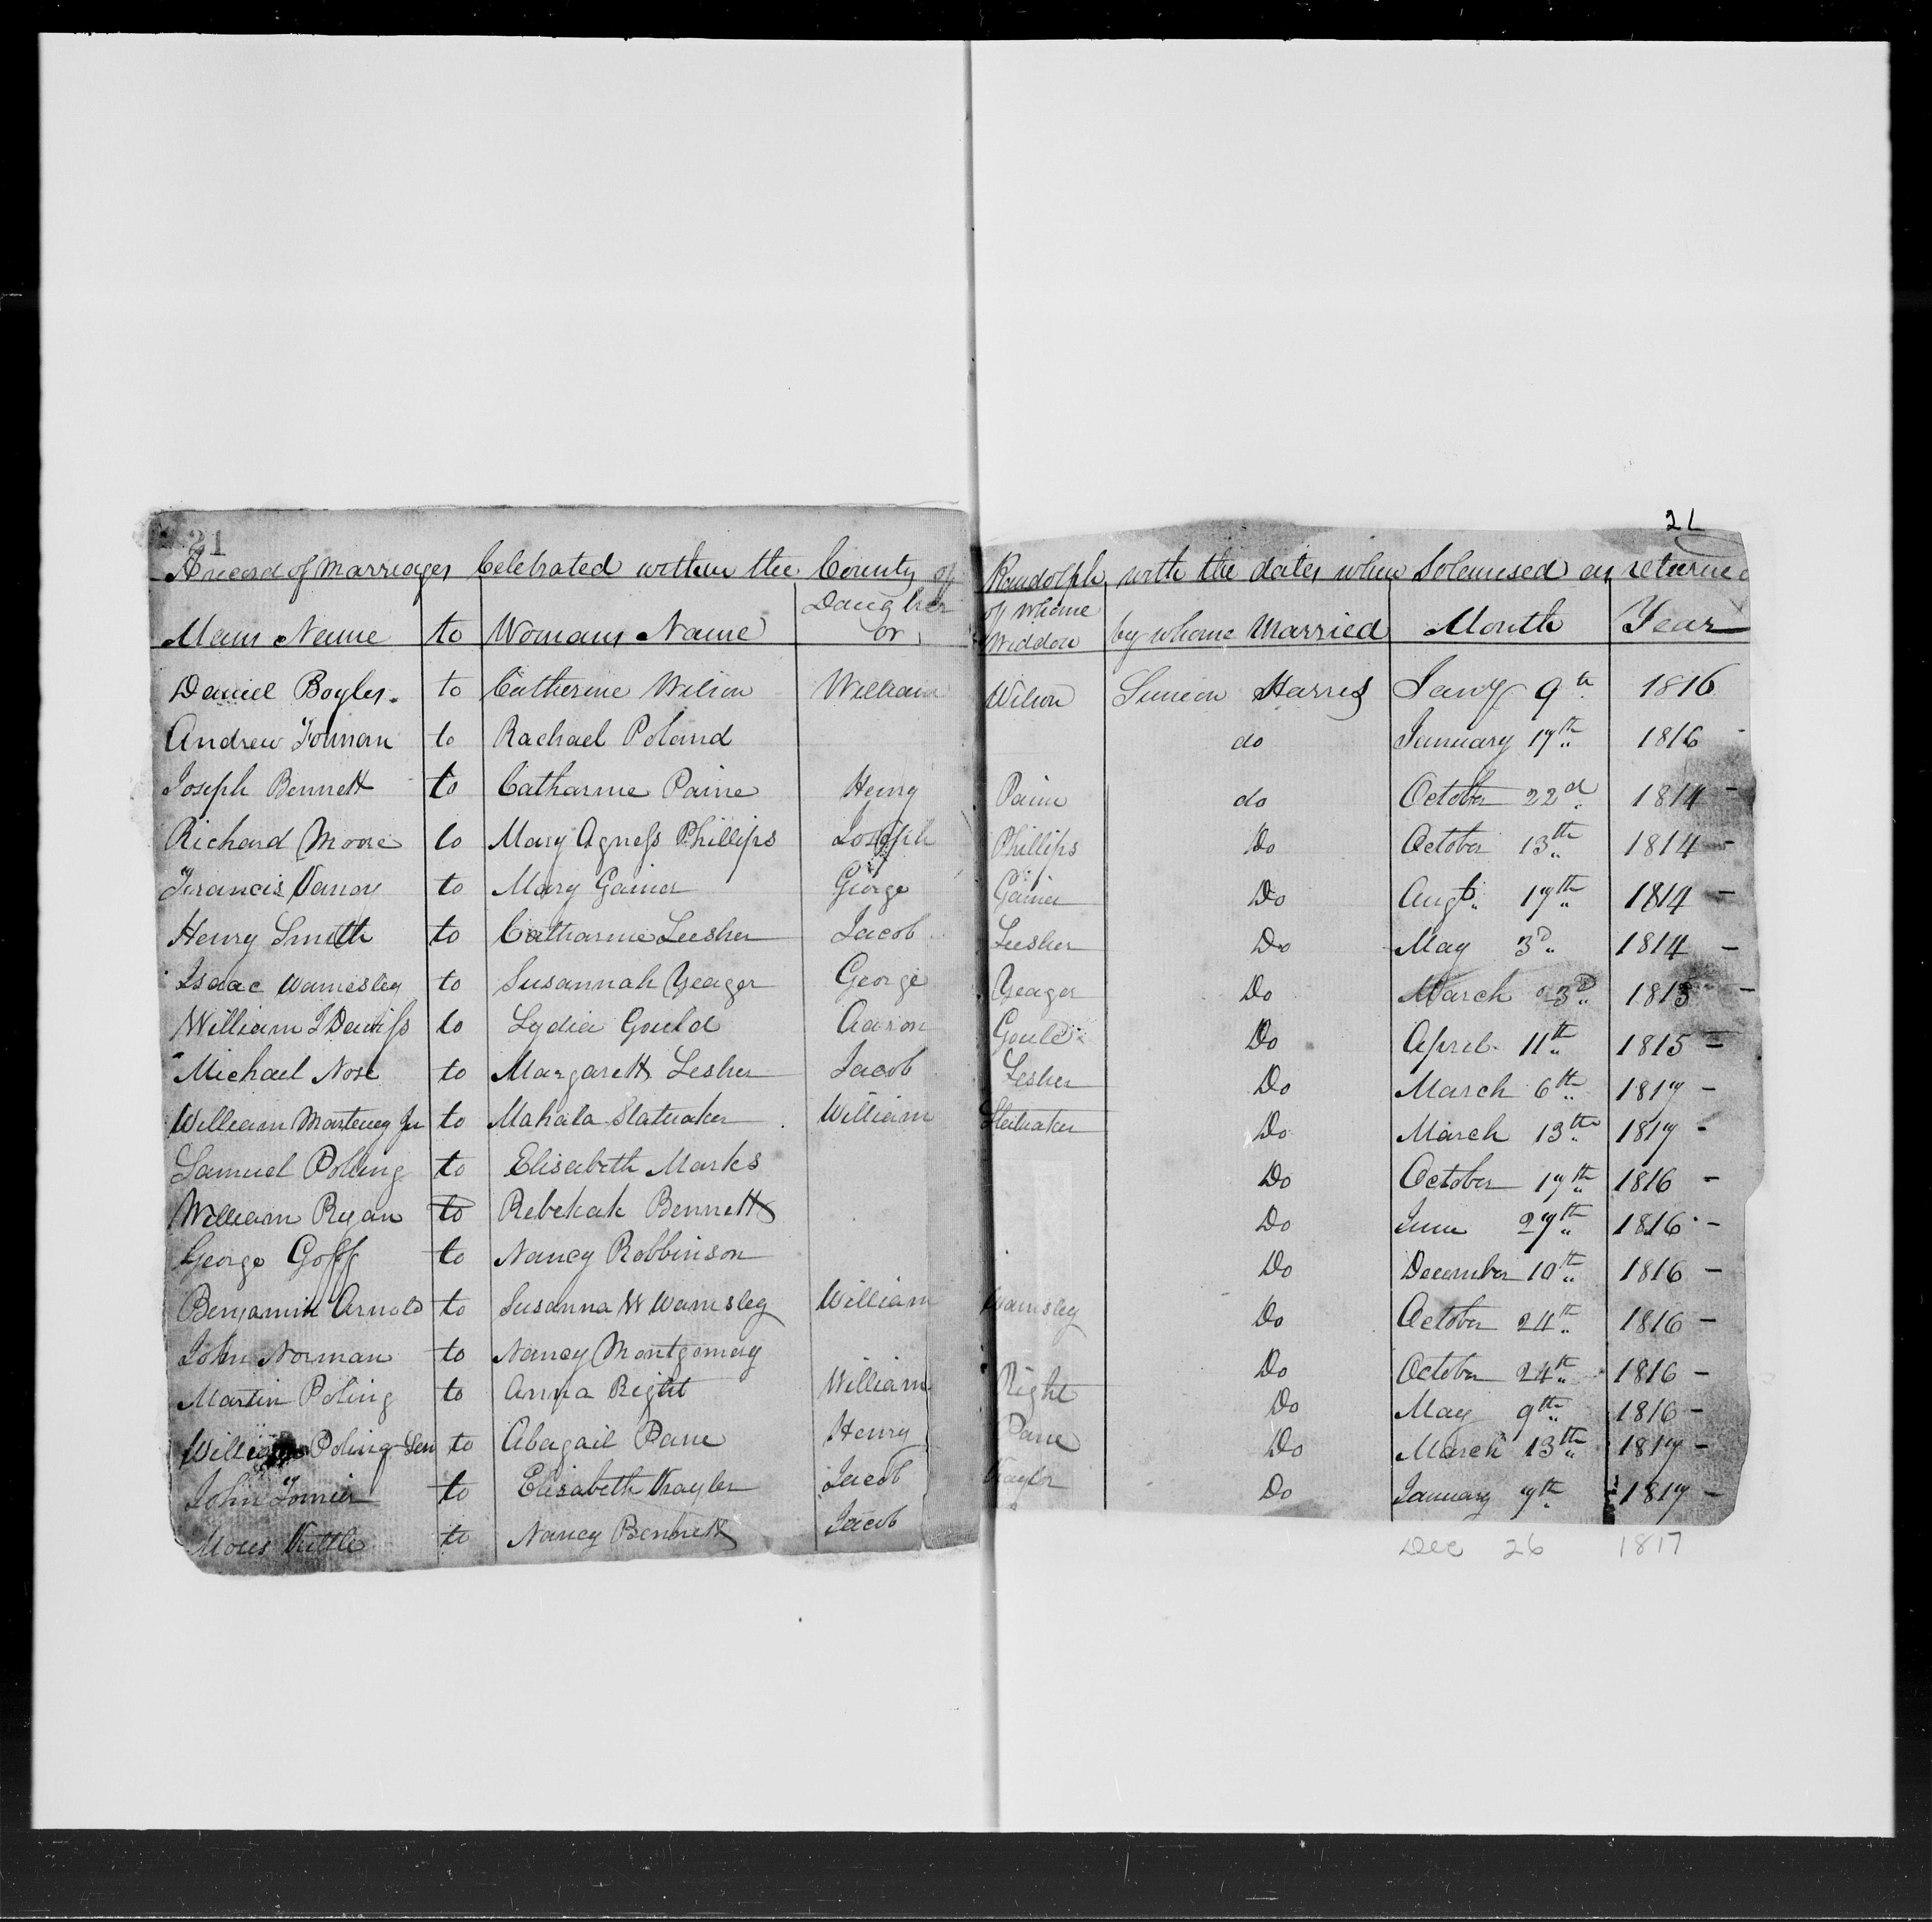 21
21
A record of Marriages Celebrated within the County of Randolph with the dates when Solemnised as returned
Mans Name to Womans Name Daughter or of Whome Widdow by whome Married Month Year
Daniel Boyles to Catherine Wilson William Wilson Simeon Harris Jany 9th 1816
Andrew Fouman to Rachael Poland do January 17th 1816
Joseph Bennett to Catharine Paine Henry Paine do October 22d 1814
Richard Moore to Mary Agness Phillips Joseph Phillips Do October 13th 1814
Francis Vancy to Mary Gainer George Gainer Do Augt 17th 1814
Henry Smith to Catharine Leesher Jacob Leesher Do May 3D 1814
Isaac Wamesley to Susannah Yeager George Yeager Do March 23D 1813
William I Daviss to Lydia Gould Aaron Gould Do April 11th 1815
Michael Nose to Margarett Lesher Jacob Lesher Do March 6th 1817
William Marteney Ju to Mahala Statnaker William Statnaker Do March 13th 1817
Samuel Poling to Elisabeth Marks Do October 17th 1816
William Ryan to Rebekah Bennett Do June 27th 1816
George Goff to Nancy Robbinson Do December 10th 1816
Benjamin Arnold to Susanna W Wamsley William Wamsley Do October 24th 1816
John Norman to Nancy Montgomery Do October 24th 1816
Martin Poling to Anna Right William Right Do May 9th 1816
William Poling Sen to Abagail Pane Henry Pane Do March 13th 1817
John to Elisabeth Kayler Jacob Kayler Do January 9th 1817
Moses Kittle to Nancy Bennett Jacob
Dec 26 1817